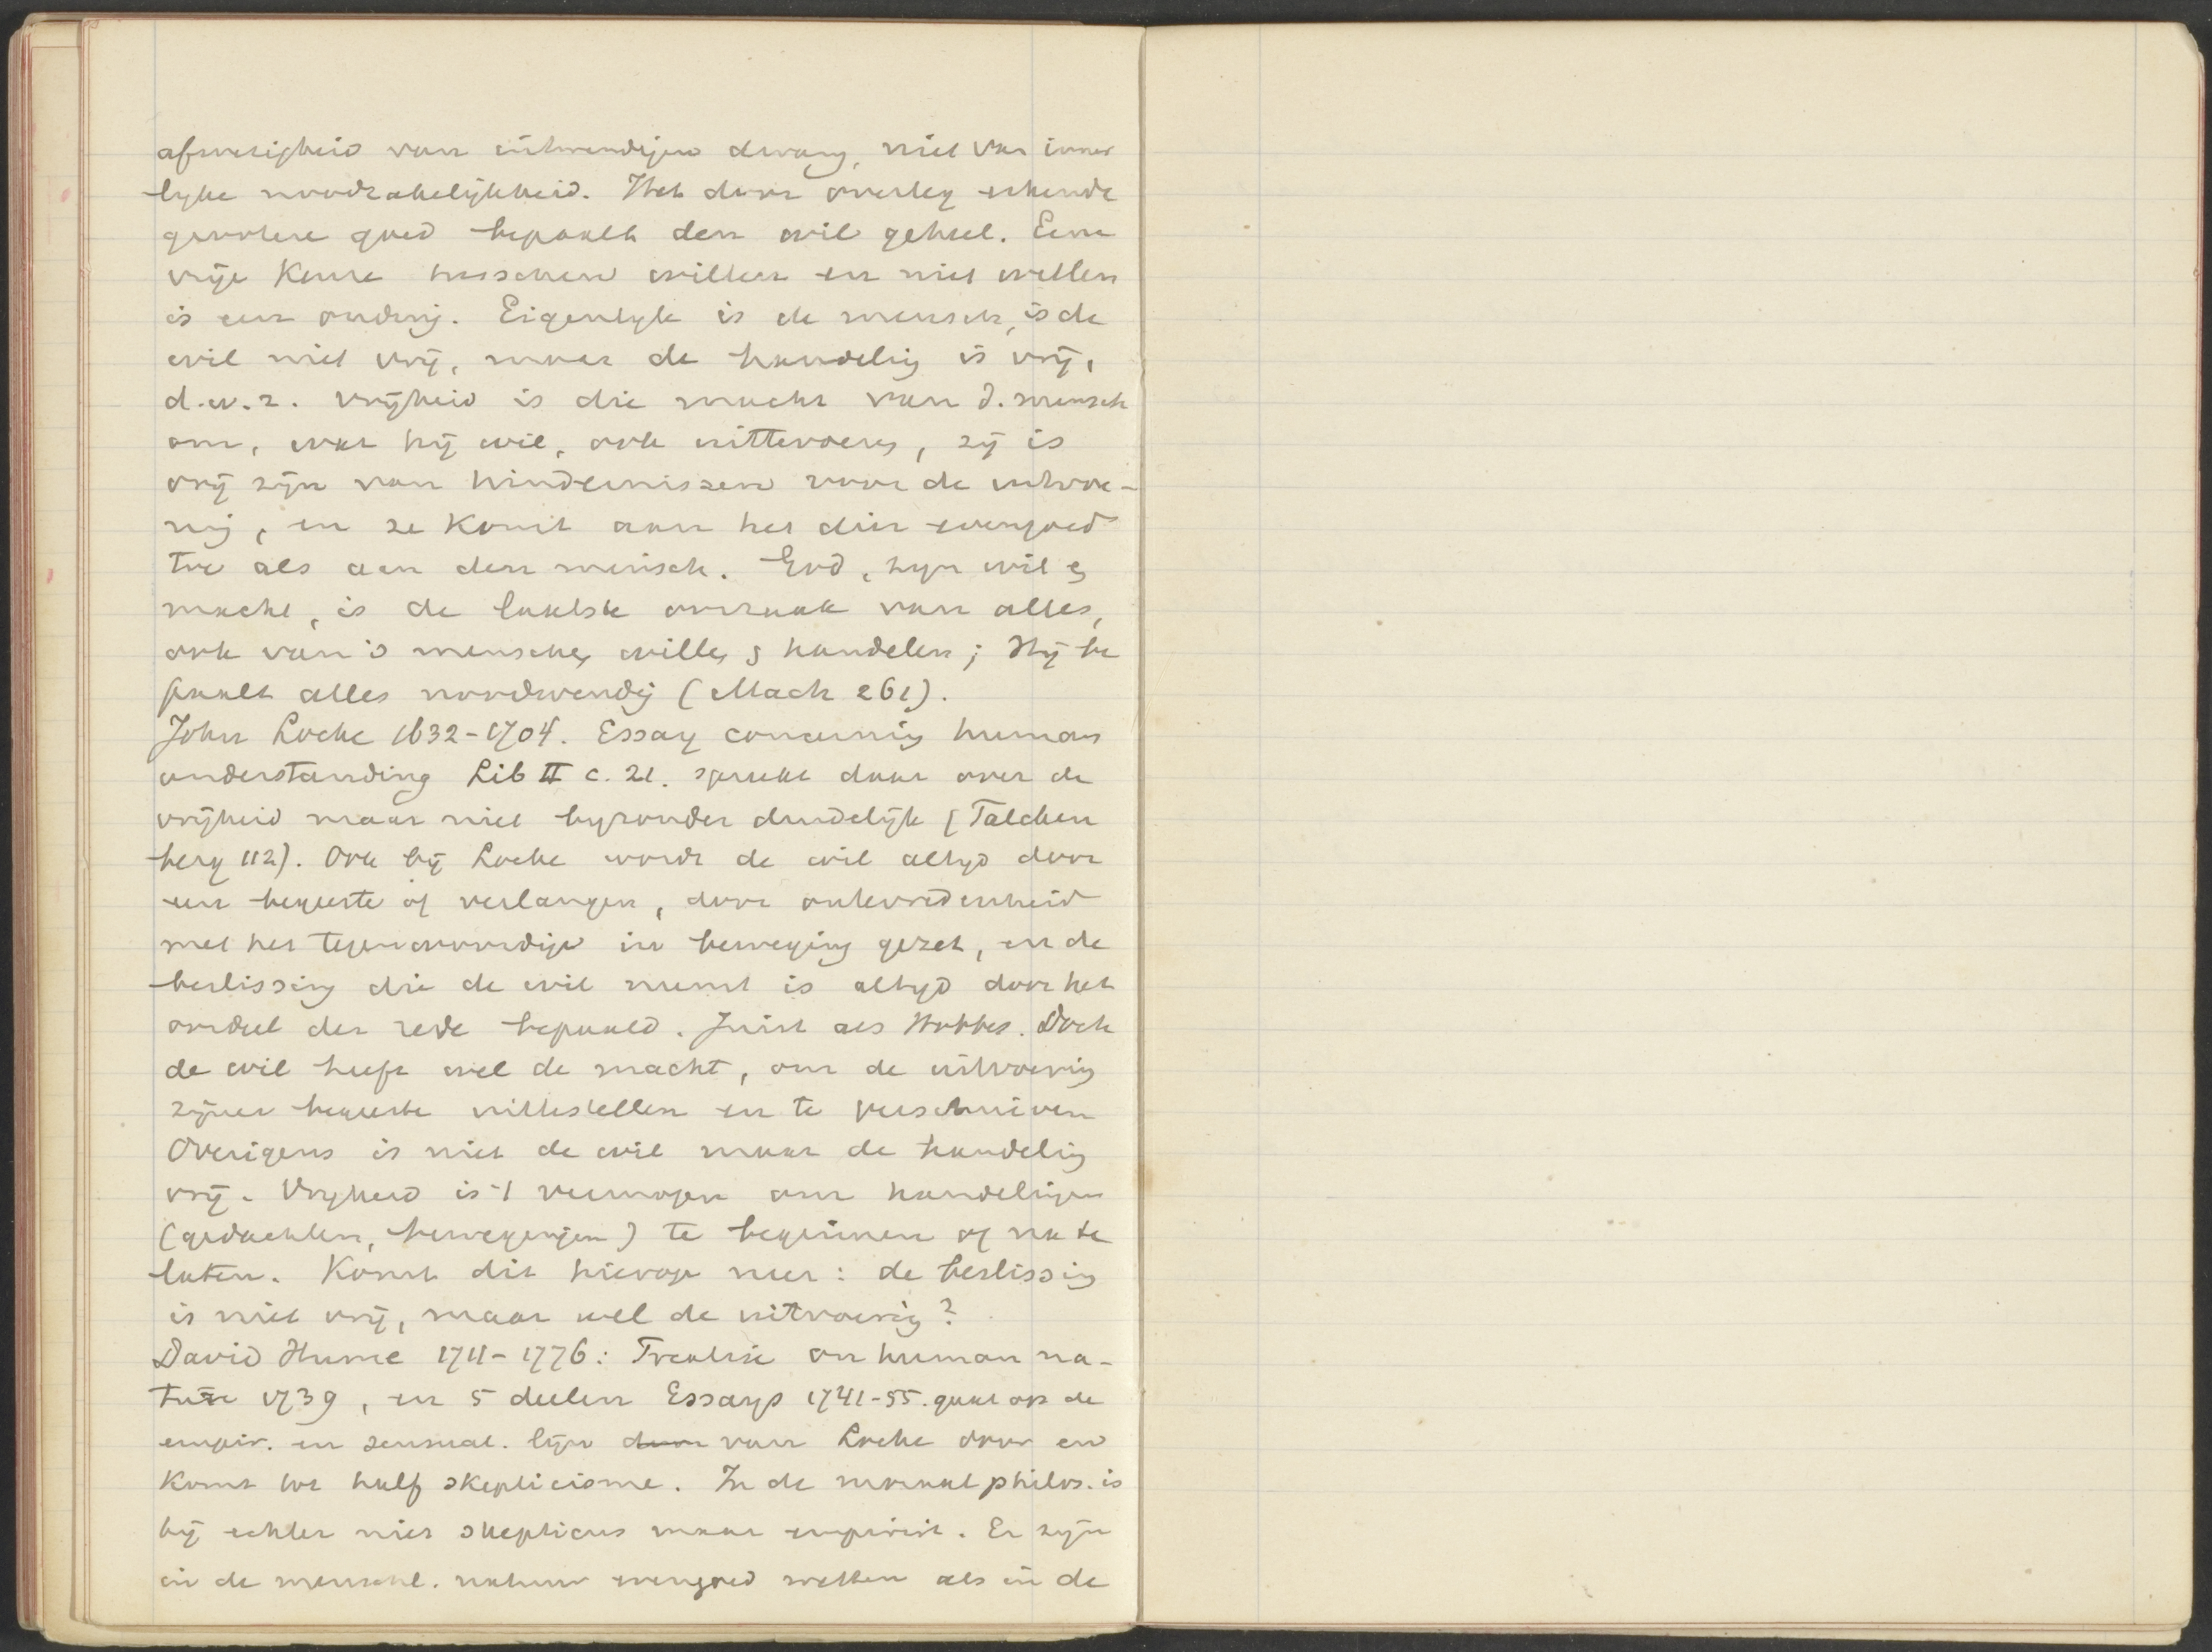 afwezigheid van uitwendigen dwang, niet van inner
lyke noodzakelijkheid. Het door overleg erkende
grootere goed bepaalt den wil geheel. Eene
vrije Keuze tusschen willen en niet willen
is een onding. Eigenlyk is de mensch, is de
wil niet vrij, maar de handelig is vrij,
d.w.z. vrijheid is die macht van d. mensch
om, wat hij wil, ook uittevoeren, zij is
vrij zijn van hindernissen voor de uitvoe-
ring, en ze Komt aan het dier evengoed
toe als aan den mensch. God, zijn wil en
macht, is de laatste oorzaak van alles,
ook van 's menschen willen en handelen; Hij be
paalt alles noodwendig (Mach 261).
John Locke 1632-1704. Essay concerning human
understanding Lib II c. 21. spreekt daar over de
vrijheid maar niet byzonder duidelijk (Talcken
berg 112). Ook bij Locke wordt de wil altyd door
een begeerte of verlangen, door ontevredenheid
met het tegenwoordige in beweging gezet, en de
beslissing die de wil neemt is altyd door het
oordeel der rede bepaald. Juist als Hobbes. Doch
de wil heeft wel de macht, om de uitvoering
zijner begeerte uittestellen en te verschuiven
Overigens is niet de wil maar de handeling
vrij. Vryheid is 't vermogen om handelingen
(gedachten, bewegingen) te beginnen of na te
laten. Komt dit hierop neer: de beslissing
is niet vrij, maar wel de uitvoering?
David Hume 1711-1776: Treatise on human na-
ture 1739, en 5 deelen Essays 1741-55. gaat op de
empir. en sensual. lijn door van Locke door en
Komt tot half skepticisme. In de moraal philos. is
hij echter niet skepticus maar empirist. Er zijn
in de menschl. natuur evengoed wetten als in de